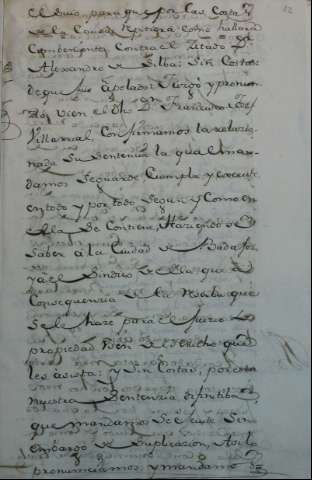 el suio, para que por las cosas
de la
combenientes contra el citado Dn
Alexandro de Silba: Sin Costas
de que fue apelado, Juzgó y pronun
ció vien el Dho Dn Francisco
Villarreal, confirmamos la relacio-
nada su sentencia la qual man-
damos se guarde cumpla y execute
en todo y por todo segun y como en
ella se contiene, haziendose
saber á la Ciudad de Badajoz
y á el Sindico de ella, que á
consequencia de la reserba que
se le hace para el Juicio de
propiedad usen de el derecho que
les asista: y sin Costas, por esta
nuestra Sentencia difinitiba
que mandamos se execute sin
embargo de suplicacion, asi lo
pronunciamos, y mandamos